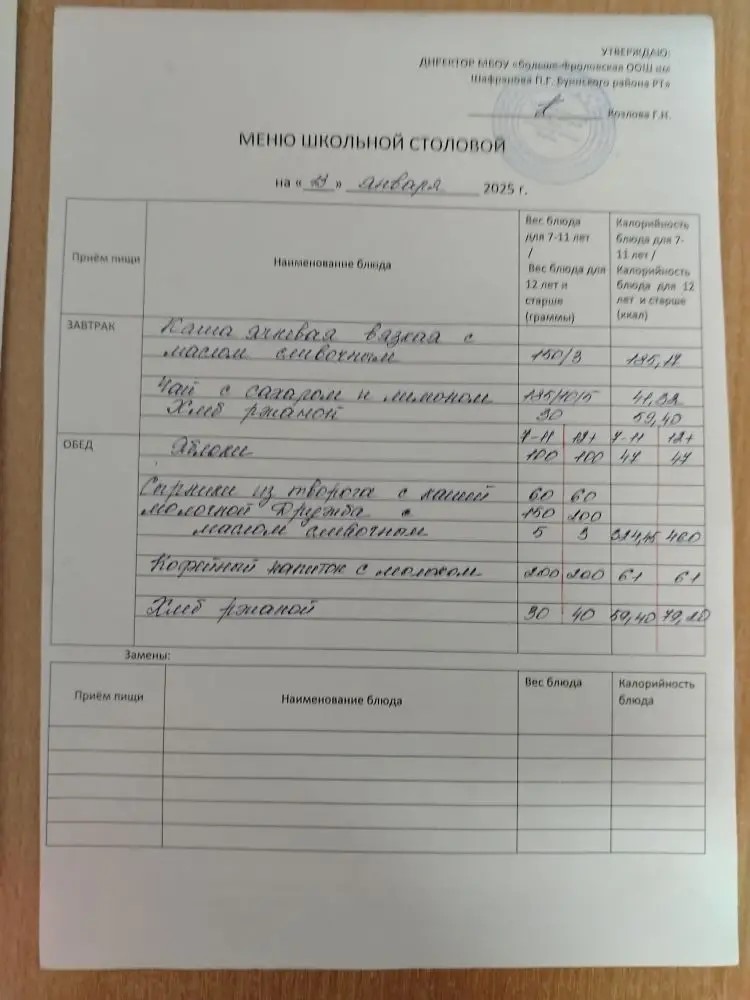 УТВЕРЖДАЮ:
ДИРЕКТОР МБОУ «Больше-Фроловская ООШ им
Шафранова П.Г. Буинского района РТ»
Козлова Г.Н.
МЕНЮ ШКОЛЬНОЙ СТОЛОВОЙ
на « » января 2025 г.
Приём пищи Наименование блюда Вес блюда для 7-11 лет / Вес блюда для 12 лет и старше (граммы) Калорийность блюда для 7-11 лет / Калорийность блюда для 12 лет и старше (ккал)
ЗАВТРАК Каша ячневая вязкая с
маслом сливочным 150/3
Чай с сахаром и лимоном
Хлеб ржаной 30 59,40
ОБЕД 7-11 12+ 7-11 12+
Яблоки 100 100 47 47
Сырники из творога с кашей 60 60
молочной Дружба с 150 200
маслом сливочным 5 460
Кофейный напиток с молоком 200 200 61 61
Хлеб ржаной 30 40 59,40 79,20
Замены:
Приём пищи Наименование блюда Вес блюда Калорийность блюда